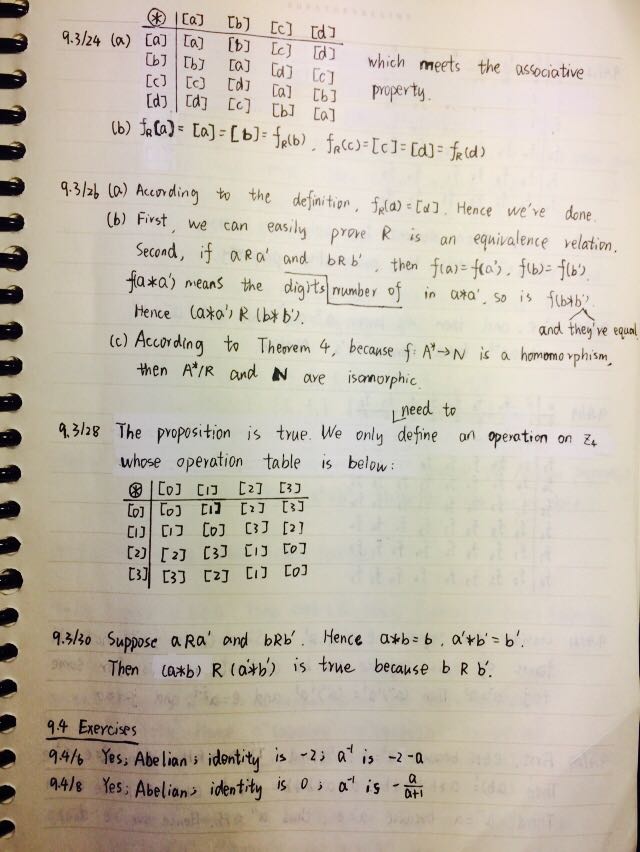 ⊛ [a] [b] [c] [d]
9.3/24 (a) [a] [a] [b] [c] [d]
[b] [b] [a] [d] [c] which meets the associative
[c] [c] [d] [a] [b] property.
[d] [d] [c] [b] [a]
(b) fR(a) = [a] = [b] = fR(b), fR(c) = [c] = [d] = fR(d)
9.3/26 (a) According to the definition, fR(a) = [a]. Hence we've done.
(b) First, we can easily prove R is an equivalence relation.
Second, if aRa' and bRb', then f(a) = f(a'), f(b) = f(b').
f(a*a') means the digits number of in a*a', so is f(b*b').
Hence (a*a') R (b*b'). and they're equal
(c) According to Theorem 4, because f: A*→N is a homomorphism,
then A*/R and N are isomorphic.
need to
9.3/28 The proposition is true. We only define an operation on Z4
whose operation table is below:
⊛ [0] [1] [2] [3]
[0] [0] [1] [2] [3]
[1] [1] [0] [3] [2]
[2] [2] [3] [1] [0]
[3] [3] [2] [1] [0]
9.3/30 Suppose aRa' and bRb'. Hence a*b = b, a'*b' = b'.
Then (a*b) R (a'*b') is true because b R b'.
9.4 Exercises
9.4/6 Yes; Abelian; identity is -2; a⁻¹ is -2-a
9.4/8 Yes; Abelian; identity is 0; a⁻¹ is -a/(a+1)